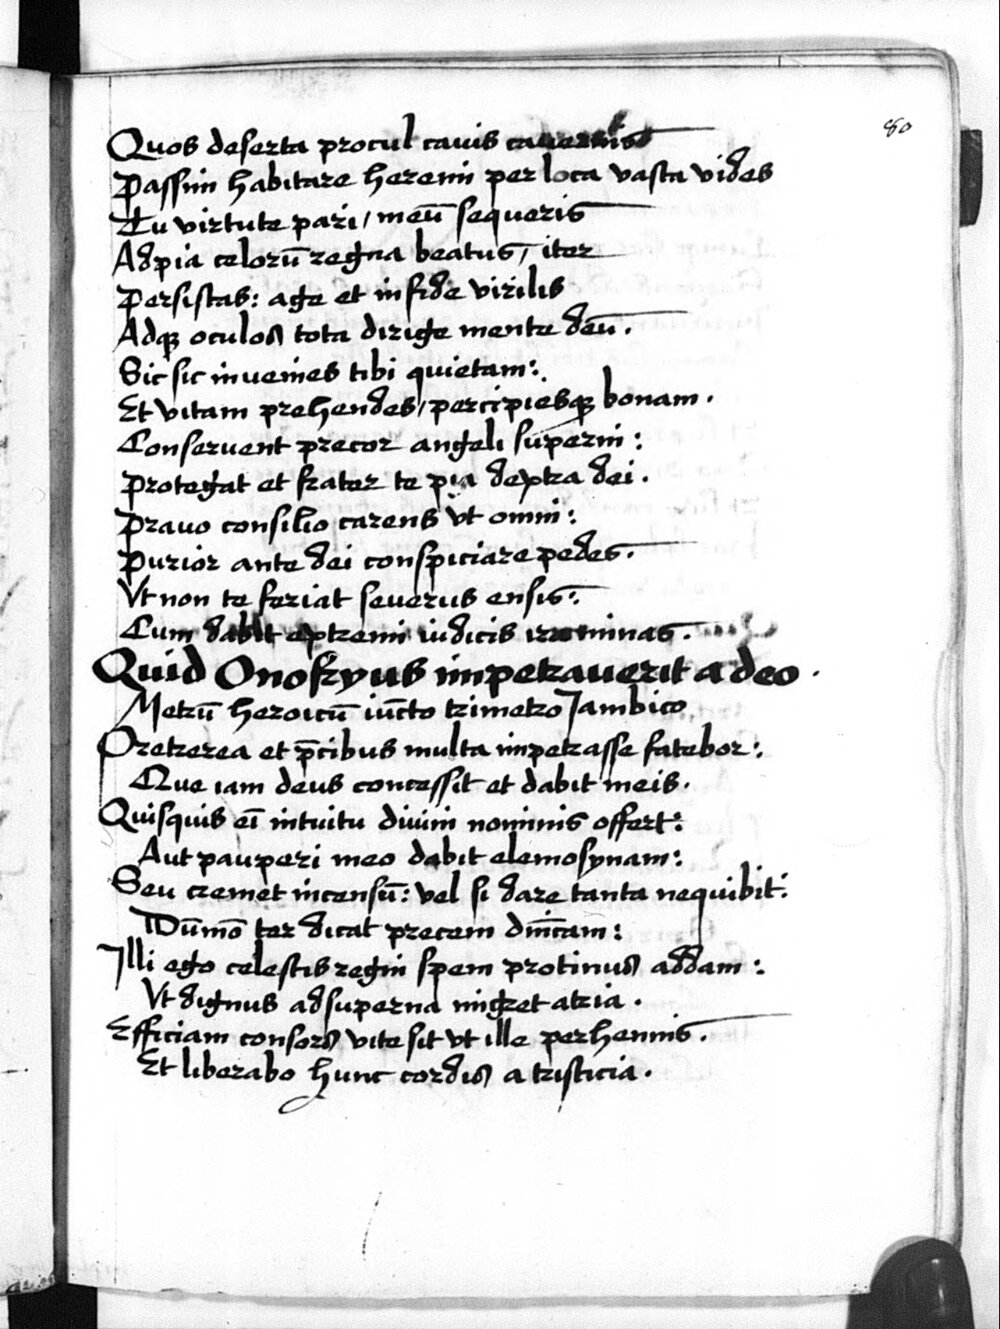 80
Quos deserta procul cauis cauernis
Passim habitare heremi per loca vasta vides
Tu virtute pari / meū sequeris
Ad pia celorū regna beatus / iter
Persistas: age et in fide virilis
Adqꝫ oculos tota dirige mente deū.
Sic sic inuenies tibi quietam:.
Et vitam prehendes / percipiesqꝫ bonam.
Conseruent precor angeli superni:
Protegat et frater te pia dextra dei.
Prauo consilio carens vt omni:
Purior ante dei conspiciare pedes.
Vt non te feriat seuerus ensis:
Cum dabit extremi iudicis minas.
Quid Onofryus impetrauerit a deo.
Metrū heroicū iūcto trimetro Jambico
Pretzerea et p̄cibus multa impetrasse fatebor:
Que iam deus concessit et dabit meis.
Quisquis eī intuitu diuini nominis offert:
Aut pauperi meo dabit elemosynam:
Seu cremet incensū: vel si dare tanta nequibit:
Dūmō ter dicat precem dn̄icam:
Illi ego celestis regni spem protinus addam:
Vt dignus ad superna migret atria.
Efficiam consors vite sit vt ille perhennis.
Et liberabo hunc cordis a tristicia.